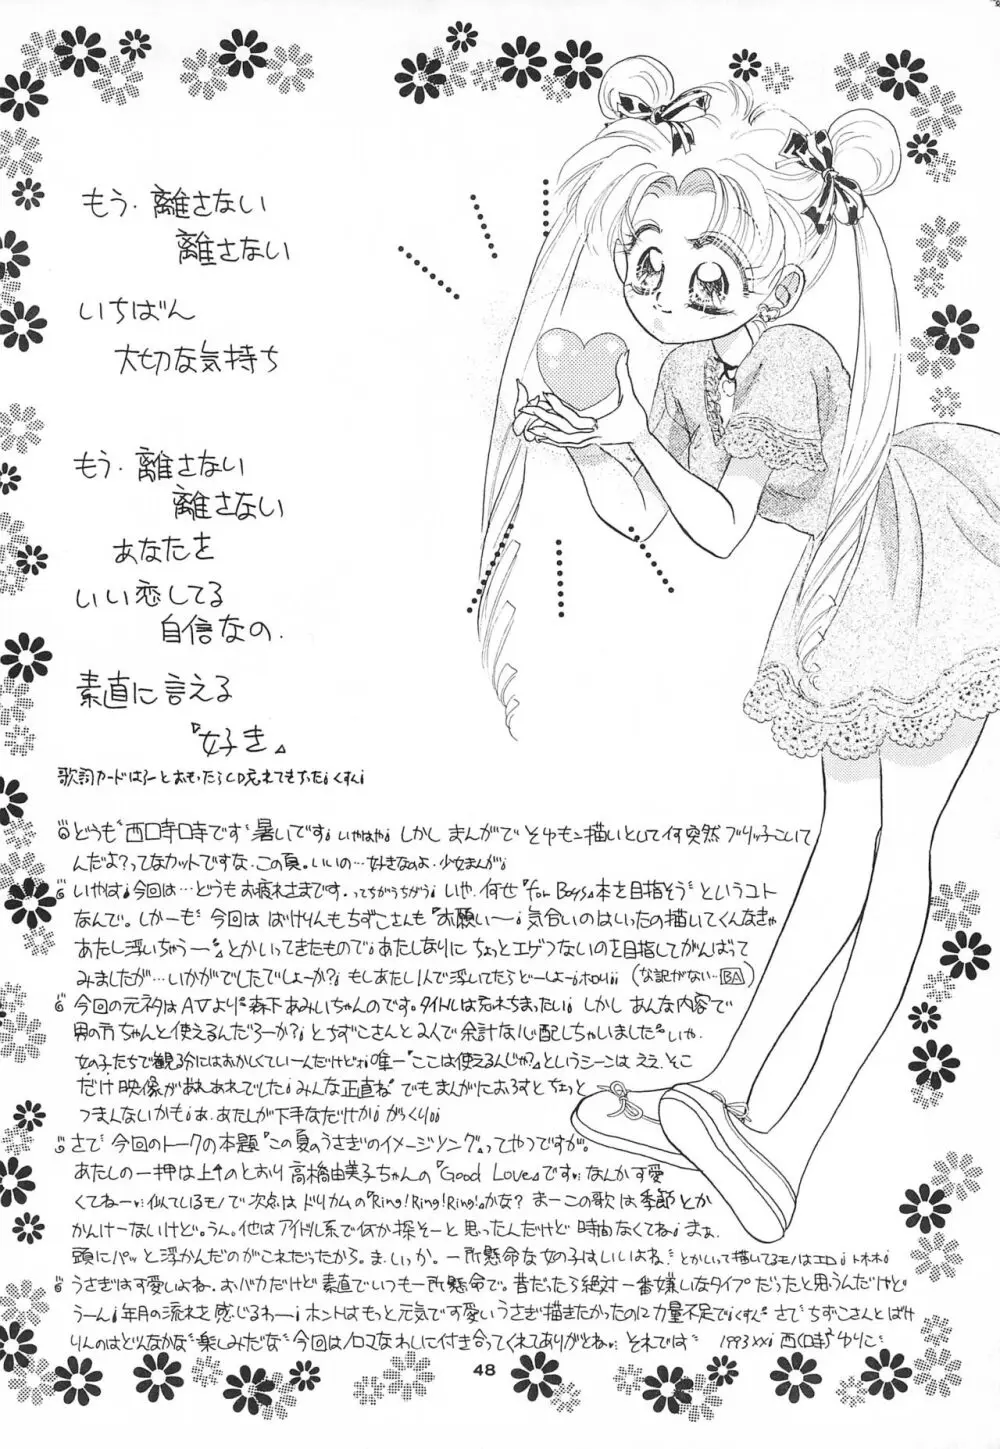 もう・離さない
離さない
いちばん
大切な気持ち
もう・離さない
離さない
あなたを
いい恋してる
自信なの.
素直に言える
『好き』
歌詞カードはろーとおもったらCD忘れてきちった! くすん!
どうも"西口寺口寺です"暑いです! いやはや! しかし まんがで そゆモン描いとして何突然 ブリッ子こいて
んだよ?ってなカットですな。この頁。いいの…好きなのよ・少女まんが!
いやは! 今回は…どうもお疲れさまです。ってちがうちがう! いや. 何せ『for Boys』本を目指そう"というコト
なんで。しかーも"今回は ばけりんもちずこさんも『お願い〜! 気合いのはいったの描いてくんなきゃ
あたし浮いちゃうー"』とかいってきたもので! あたしなりに ちょっとエゲツないのを目指してがんばって
みましたが…いかがでしたでしょーか?! もしあたし1人で浮いてたらどーしよー! ホロリ!! (な記がない…BA)
今回の元ネタはAVより"森下あみいちゃんのです。タイトルは忘れちまったい! しかし あんな内容で
男の方ちゃんと使えるんだろーか?! とちずこさんと2人で余計な心配しちゃいました"いや.
女の子たちで観る分にはおかしくていーんだけど! 唯一『ここは使えるんじゃ?』というシーンは ええ. そこ
だけ 映像があれあれでした! みんな正直ね" でもまんがにおろすと ちょっと
つまんないかも! あ. あたしが下手なだけか! がっくり!!
さて"今回のトークの本題『この夏のうさぎのイメージソング』ってやつですが。
あたしの一押は上↑のとおり 高橋由美子ちゃんの『Good Love』です。なんかす愛
くてねー 似ているモノで次点は ドリカムの『Ring! Ring! Ring!』かな? まーこの歌は季節とか
かんけーないけど。うん。他はアイドル系で何か探そーと思ったんだけど 時間なくてね! まぁ
頭にパッと浮かんだのがこれだったから。ま・いっか。一所懸命な女の子はいいよね" とかいって描いてるモノはエロ! トホホ!
うさぎはす愛しよね. おバカだけど素直でいつも一所懸命で。昔だったら絶対一番嫌いなタイプだったと思うんだけど
うーん! 年月の流れを感じるわー! ホントはもっと元気です愛いうさぎ描きたかったのに力量不足で! くすん"さて"ちずこさんとばけ
りんのはどんなかな"楽しみだな"今回はノロマなわしに付き合ってくれてありがとね それでは" 1993xx! 西口寺2ゆりこ
48